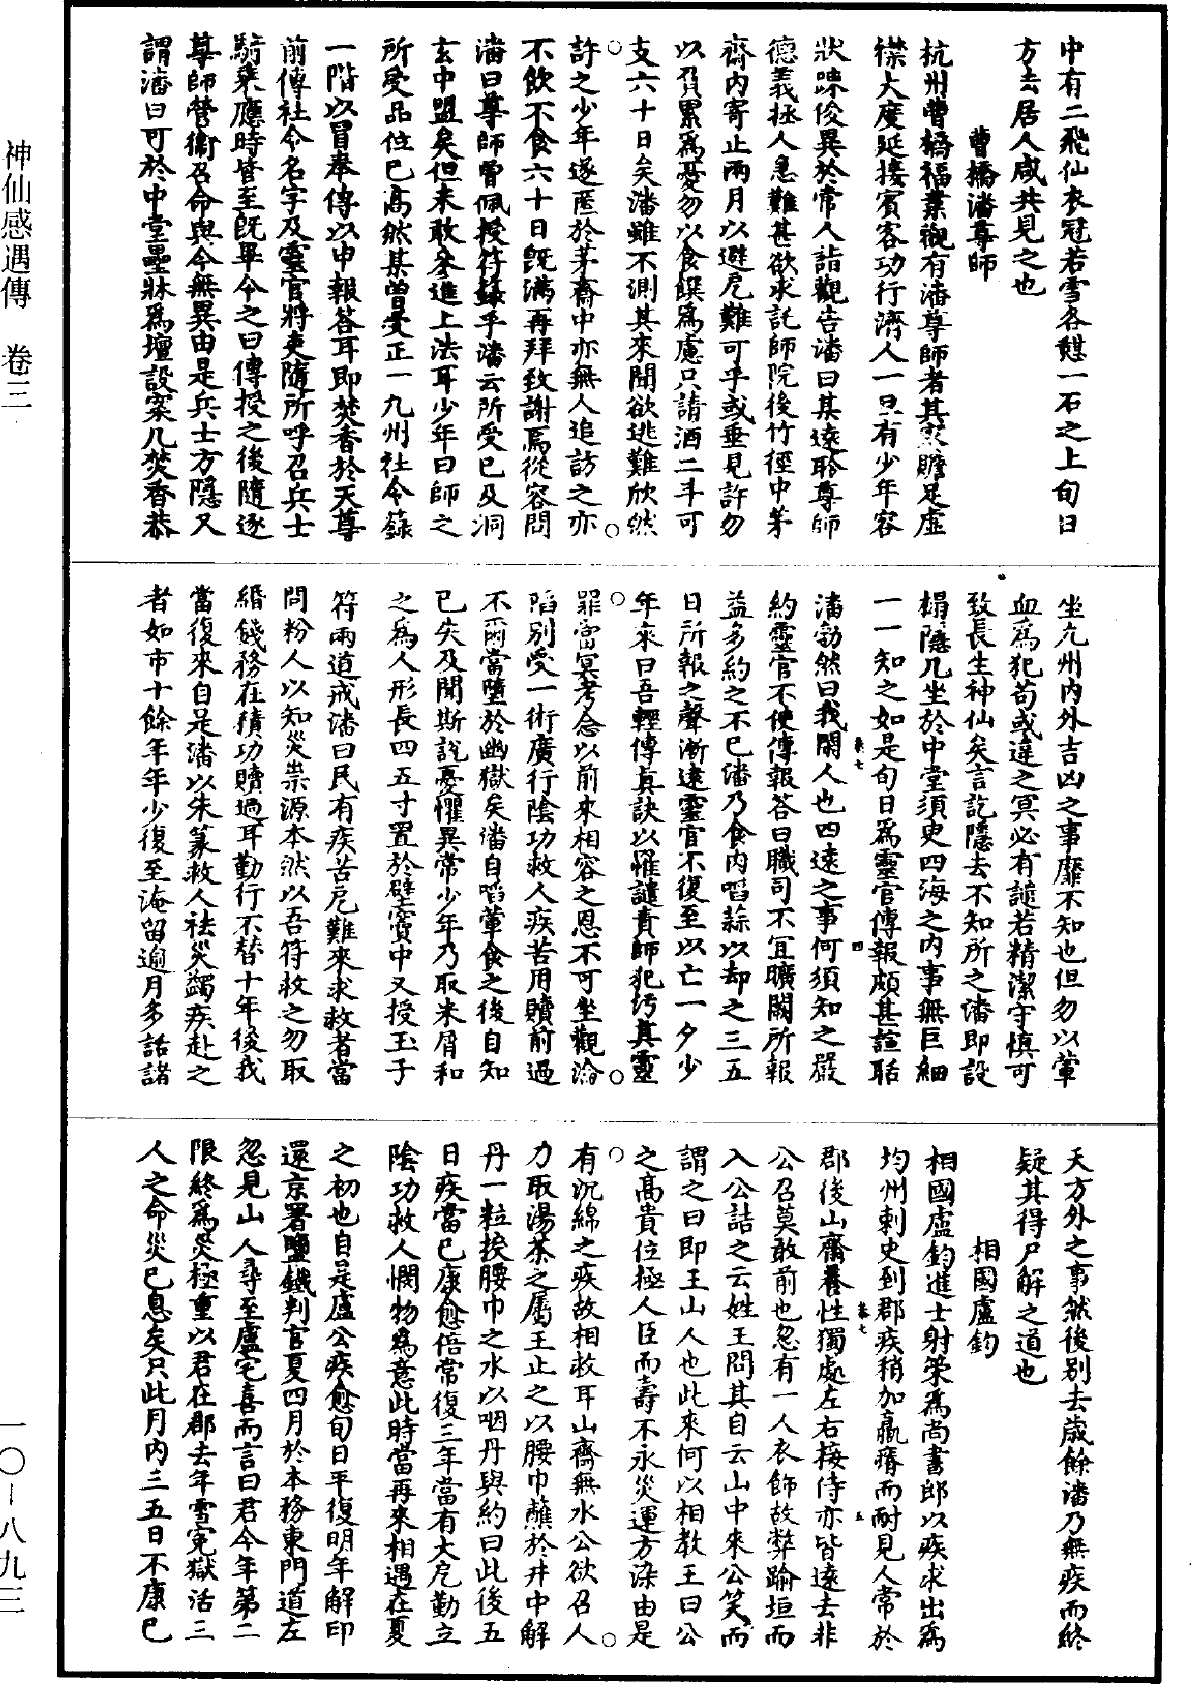 中有二飛仙衣冠若雪各憇一石之上旬日
方去居人咸共見之也
曹橋潘尊師
杭州曹橋福業觀有潘尊師者其家贍足虛
襟大度延接賓客功行濟人一旦有少年容
狀踈俊異於常人詣觀告潘曰某遠聆尊師
德義拯人急難甚欲求託師院後竹徑中茅
齋內寄止兩月以避厄難可乎或垂見許勿
以負累為憂勿以食饌為慮只請酒二斗可
支六十日矣潘雖不測其來聞欲逃難欣然
許之少年遂匿於茅齋中亦無人追訪之亦
不飲不食六十日既滿再拜致謝焉從容問
潘曰尊師曾佩授符籙乎潘云所受已及洞
玄中盟矣但未敢參進上法耳少年曰師之
所受品位已高然某曾受正一九州社令籙
一階以冒奉傳以申報荅耳即焚香於天尊
前傳社令名字及靈官將吏隨所呼召兵士
騎乘應時皆至既畢令之曰傳授之後隨逐
尊師營衛召命與今無異由是兵士方隱又
謂潘曰可於中堂壘牀為壇設案几焚香恭
坐九州內外吉凶之事靡不知也但勿以葷
血為犯苟或違之冥必有譴若精潔守慎可
致長生神仙矣言訖隱去不知所之潘即設
榻隱几坐於中堂須臾四海之內事無巨細
一一知之如是旬日為靈官傳報頗甚諠聒
潘勃然曰我閑人也四遠之事何須知之嚴
約靈官不使傳報荅曰職司不宜曠闕所報
益多約之不已潘乃食肉啗蒜以却之三五
日所報之聲漸遠靈官不復至以亡一夕少
年來曰吾輕傳真訣以罹譴責師犯污真靈
罪當冥考念以前來相容之恩不可坐觀淪
陷別受一術廣行陰功救人疾苦用贖前過
不爾當墮於幽獄矣潘自啗葷食之後自知
已失及聞斯說憂懼異常少年乃取米屑和
之為人形長四五寸置於壁竇中又授玉子
符兩道戒潘曰民有疾苦厄難來求救者當
問粉人以知災祟源本然以吾符救之勿取
緡錢務在積功贖過耳勤行不替十年後我
當復來自是潘以朱篆救人袪災蠲疾赴之
者如市十餘年年少復至淹留逾月多話諸
天方外之事然後別去歲餘潘乃無疾而終
疑其得尸解之道也
相國盧鈞
相國盧鈞進士射策為尚書郎以疾求出為
均州刺史到郡疾稍加羸瘠而耐見人常於
郡後山齋養性獨處左右接侍亦皆遠去非
公召莫敢前也忽有一人衣飾故弊踰垣而
入公詰之云姓王問其自云山中來公笑而
謂之曰即王山人也此來何以相教王曰公
之高貴位極人臣而壽不永災運方染由是
有沉綿之疾故相救耳山齋無水公欲召人
力取湯茶之屬王止之以腰巾蘸於井中解
丹一粒挼腰巾之水以咽丹與約曰此後五
日疾當已康愈倍常復三年當有大厄勤立
陰功救人憫物為意此時當再來相遇在夏
之初也自是盧公疾愈旬日平復明年解印
還京署鹽鐵判官夏四月於本務東門道左
忽見山人尋至盧宅喜而言曰君今年第二
限終為災極重以君在郡去年雪寃獄活三
人之命災已息矣只此月內三五日不康已
恭七 四
恭七 五
神仙感遇傳 卷三
一〇—八九三